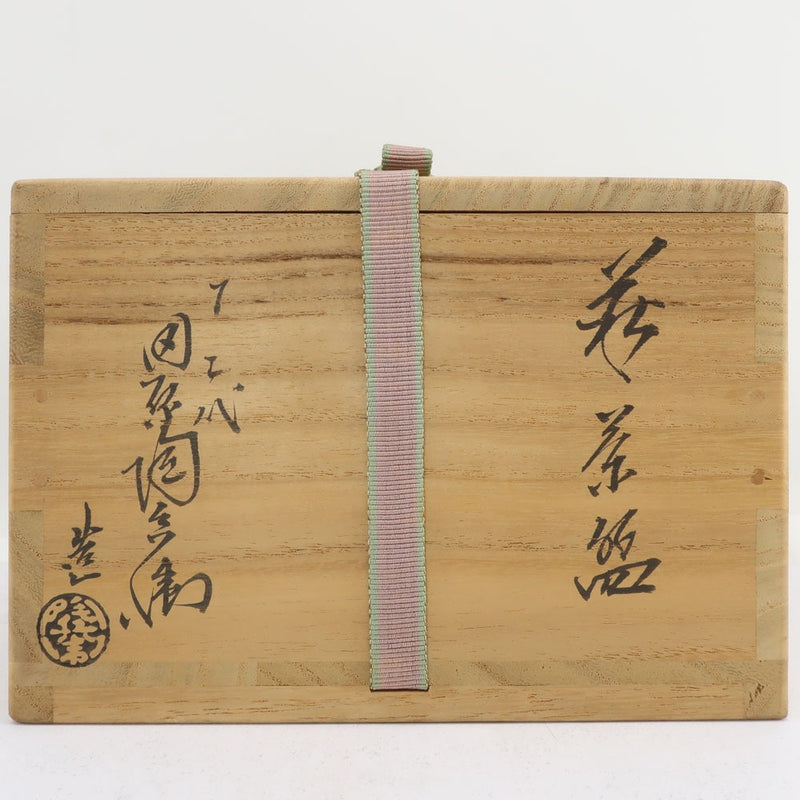 萩茶盌
十三代
田原陶兵衛
造
陶兵衛